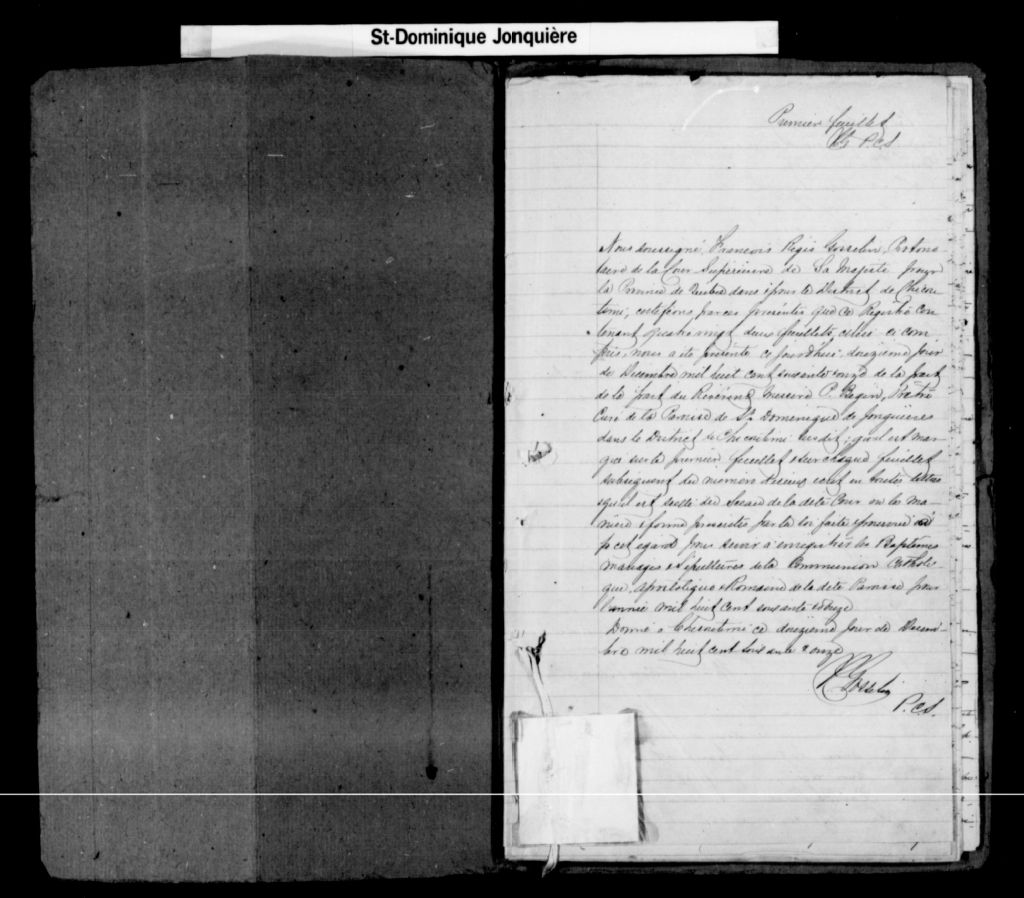 St-Dominique Jonquière
Premier feuillet
P.C.S
Nous soussigné, Francois Régis Gosselin, Protono
taire de la Cour Supérieure de Sa Majesté pour
la Province de Quebec dans & pour le District de Chicou
timi, certifions par ces présentes que ce Registre con
tenant quatre vingt deux feuillets, celui ci com
pris, nous a été présenté ce jourd'hui douzième jour
de Decembre mil huit cent soixante & onze de la part
de la part du Révérend Messire P. Begin, Prêtre
Curé de la Paroisse de St Dominique de Jonquières
dans le District de Chicoutimi susdit; qu'il est mar
qué sur le premier feuillet & sur chaque feuillet
subséquent du numéro d'iceux écrit en toutes lettres
& qu'il est scellé du Sceau de la dite Cour en la ma
nière & forme prescrites par la loi faite & pourvue
a cet egard pour servir à enregistrer les Baptêmes
mariages & Sépultures de la Communion Catholi
que, apostolique & Romaine de la dite Paroisse pour
l'année mil huit cent soixante & douze
Donné à Chicoutimi ce douzième jour de Decem-
bre mil huit cent soixante & onze
Gosselin
P.C.S.